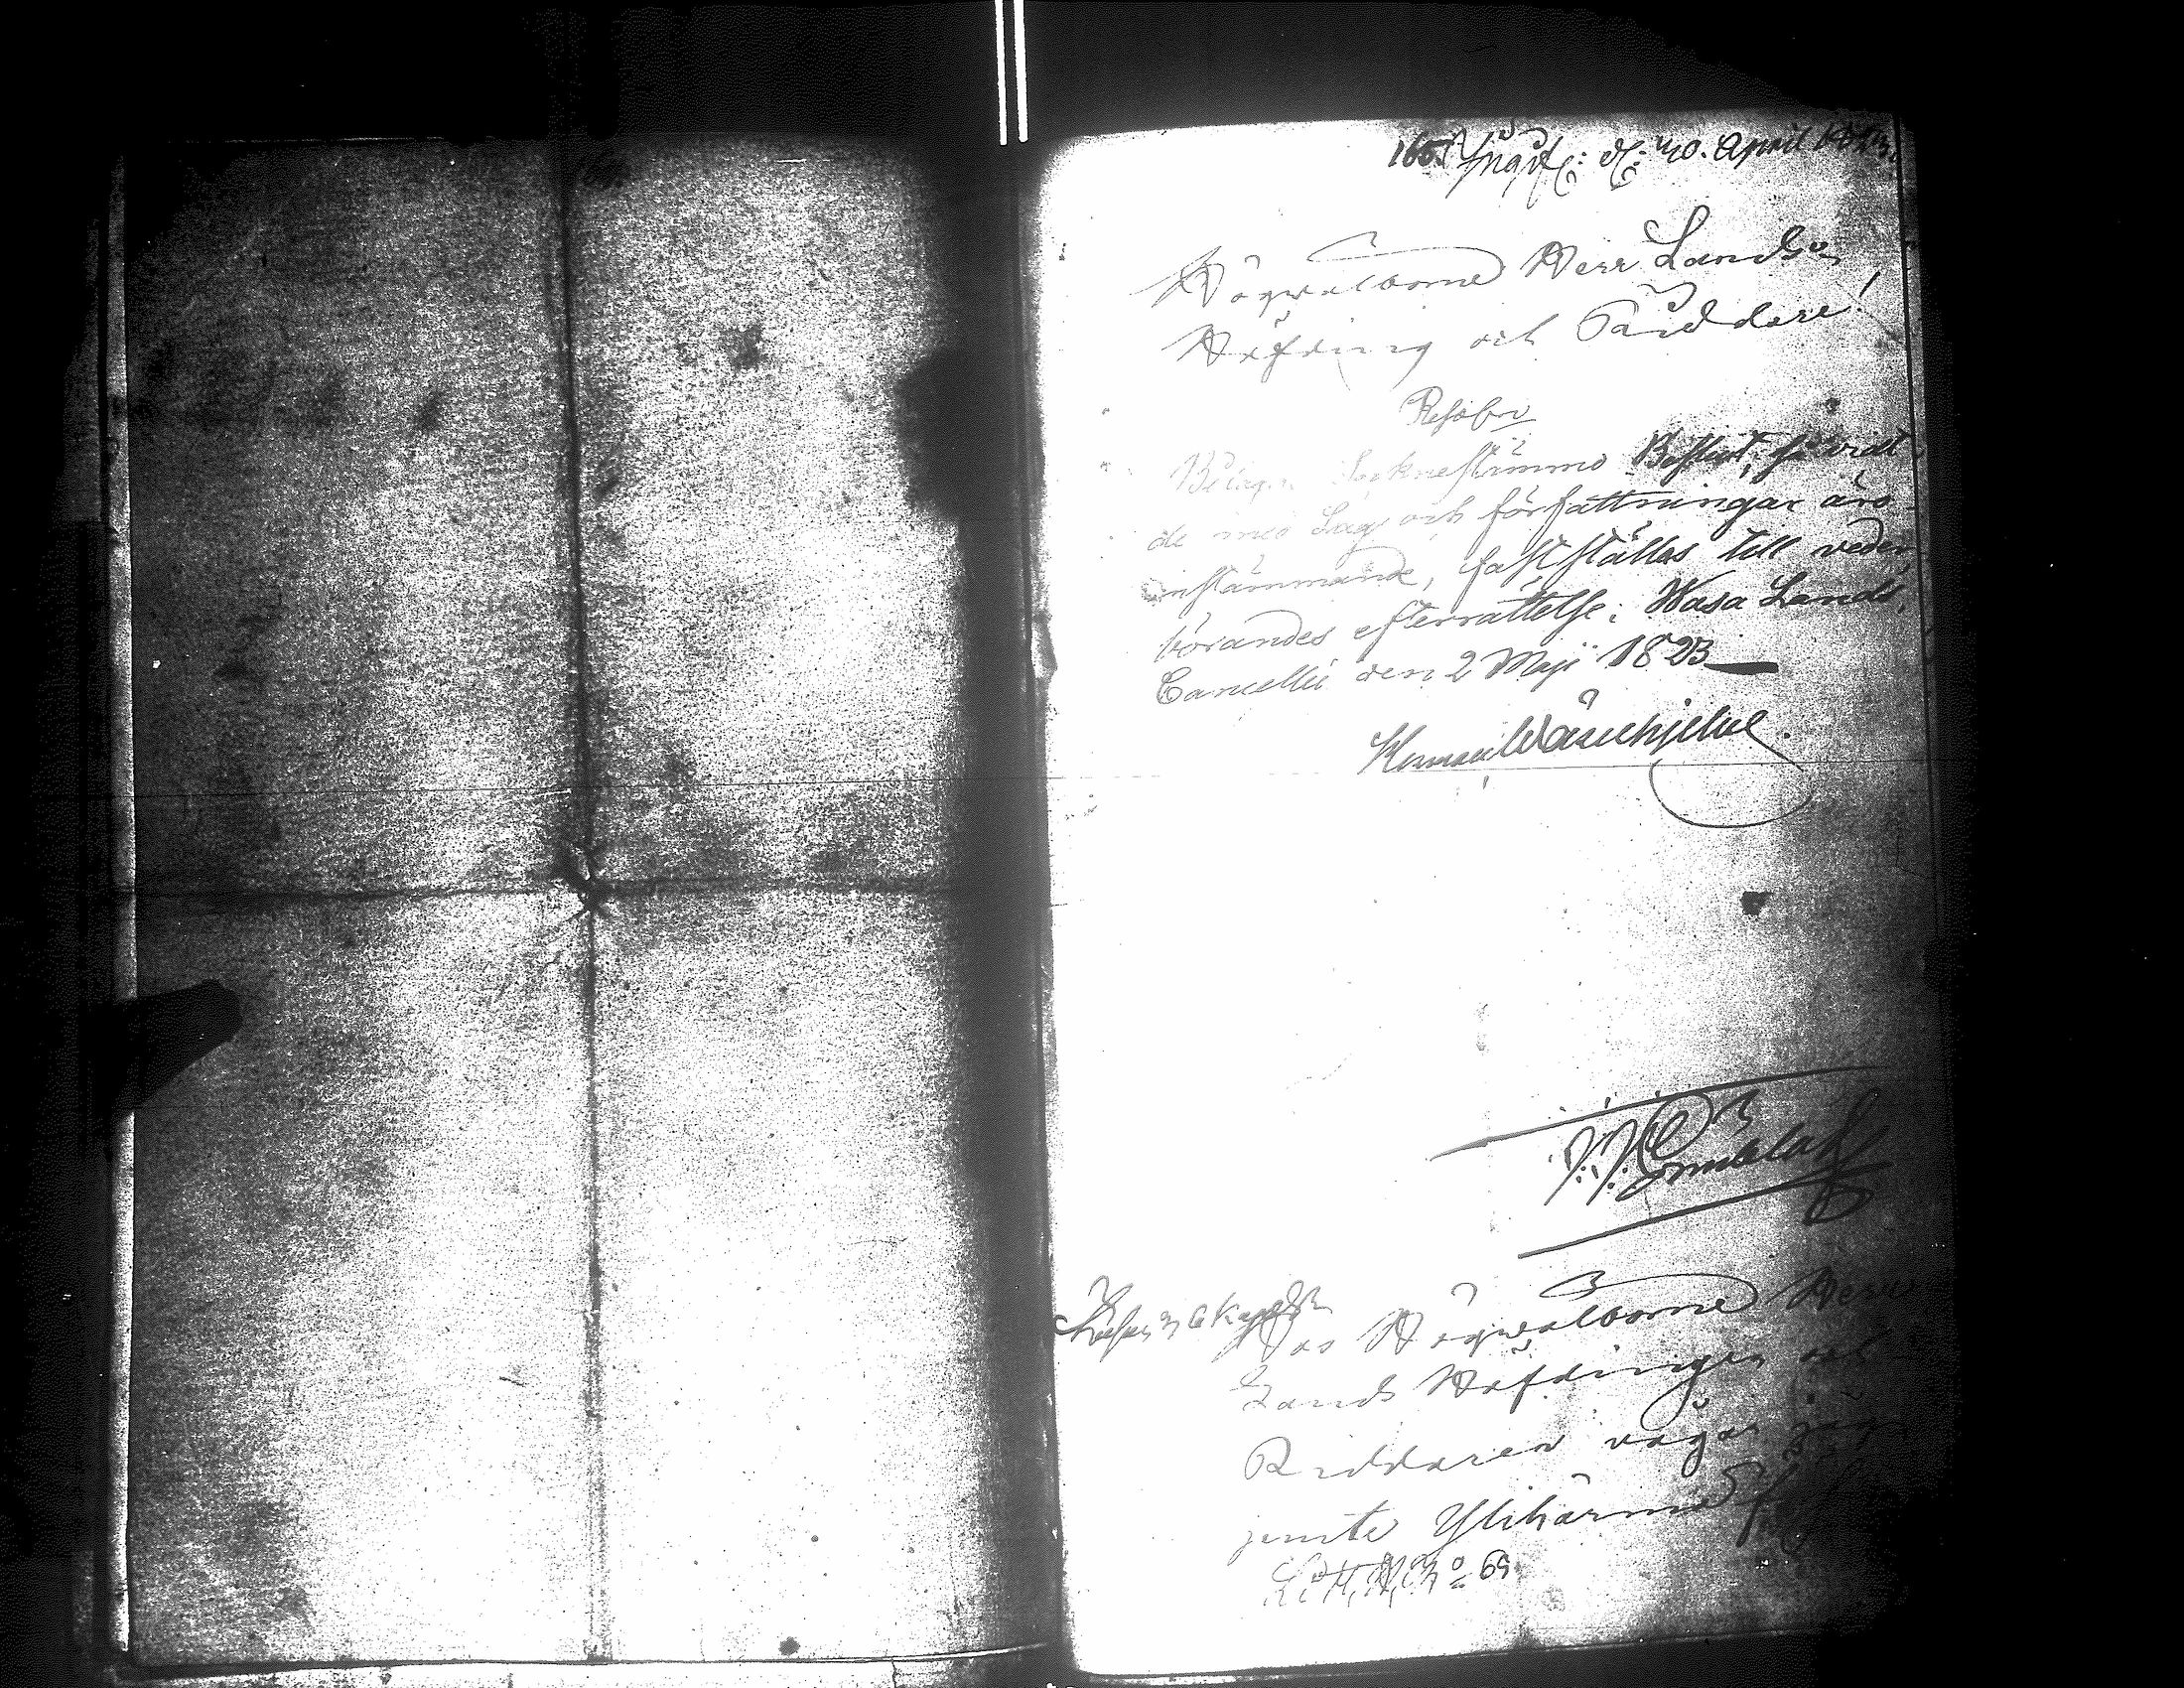 165. Ingif: d: 30. April 1823.
Högvälborne Herr Lands
Höfding och Riddare!
Resol:
Bilagde Sockneståmmo Beslut, så vidt
de med Lag och författningar äro
öfwerensstämmande, fastställas till veder
börandes efterrättelse; Wasa Lands
Cancellie den 2 Maji 1823
Herman Wärnhjelm.
Hos Högvälborne Herr
Lands Höfdingen och
Riddaren vågar jag
jemte Ylihärmä
Litt. N:o 69.